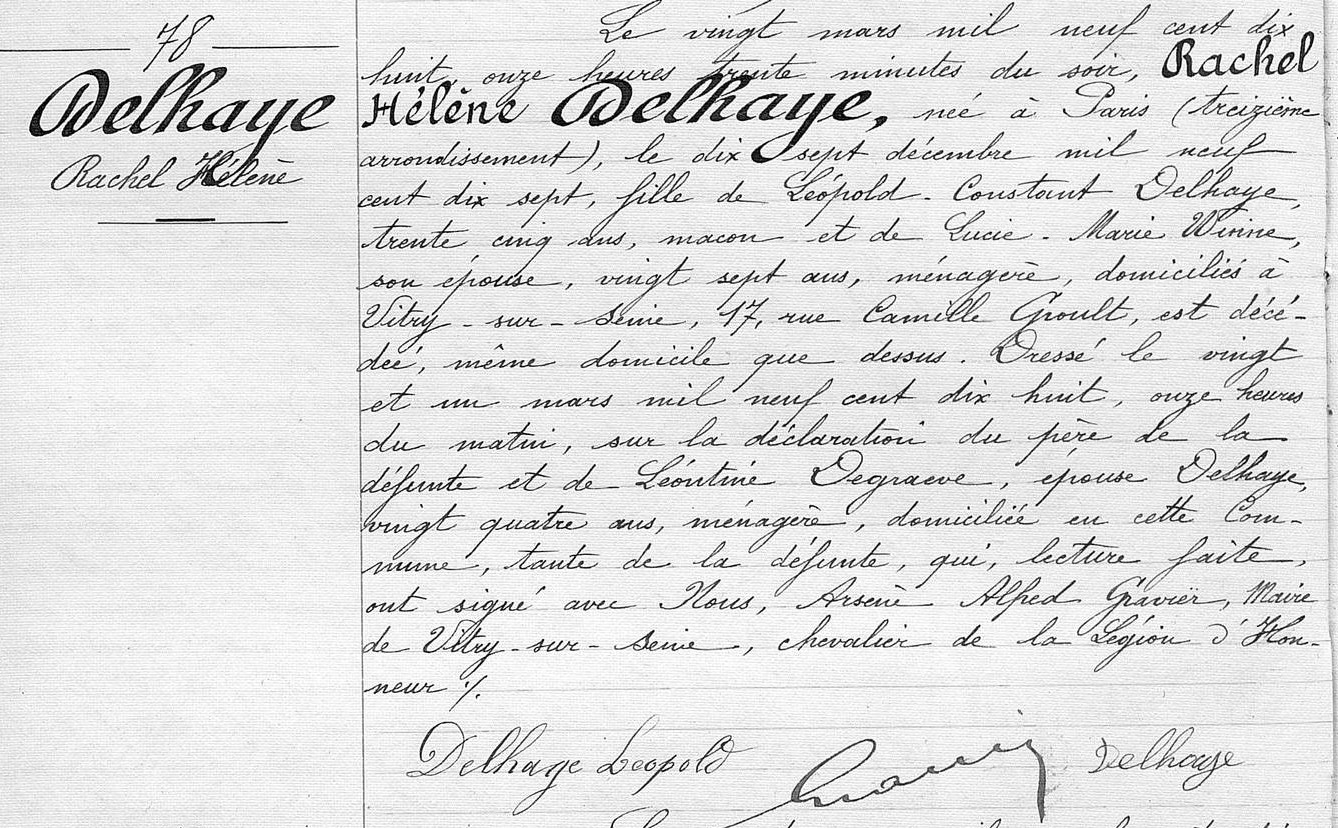 78
Delhaye
Rachel Hélène
Le vingt mars mil neuf cent dix
huit, onze heures trente minutes du soir, Rachel
Hélène Delhaye, née à Paris (treizième
arrondissement), le dix sept décembre mil neuf
cent dix sept, fille de Léopold - Constant Delhaye,
trente cinq ans, maçon et de Lucie - Marie Winne,
son épouse, vingt sept ans, ménagère, domiciliés à
Vitry - sur - Seine, 17, rue Camille Groult, est décé-
dée, même domicile que dessus. Dressé le vingt
et un mars mil neuf cent dix huit, onze heures
du matin, sur la déclaration du père de la
défunte et de Léontine Degraeve, épouse Delhaye,
vingt quatre ans, ménagère, domiciliée en cette Com-
mune, tante de la défunte, qui, lecture faite,
ont signé avec Nous, Arsène Alfred Gravier, Maire
de Vitry - sur - Seine, chevalier de la Légion d'Hon-
neur ./.
Delhaye Leopold Gravier Delhaye